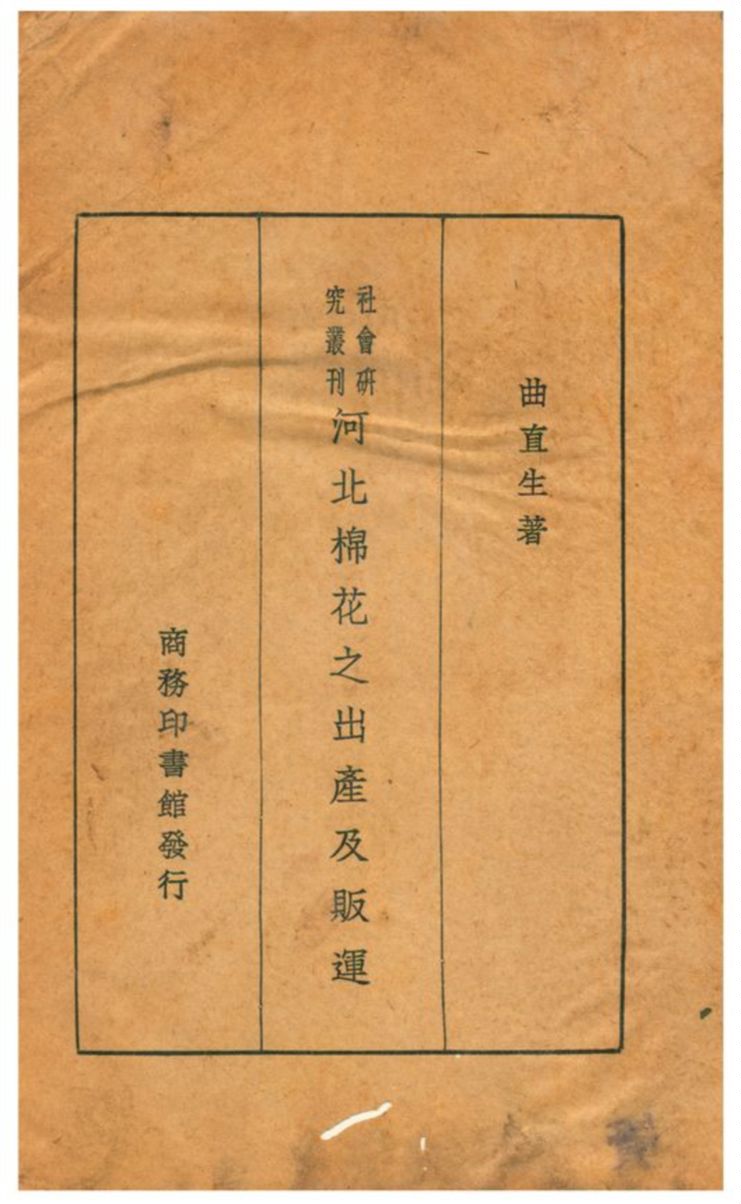 曲直生著
社會研
究叢刊
河北棉花之出產及販運
商務印書館發行